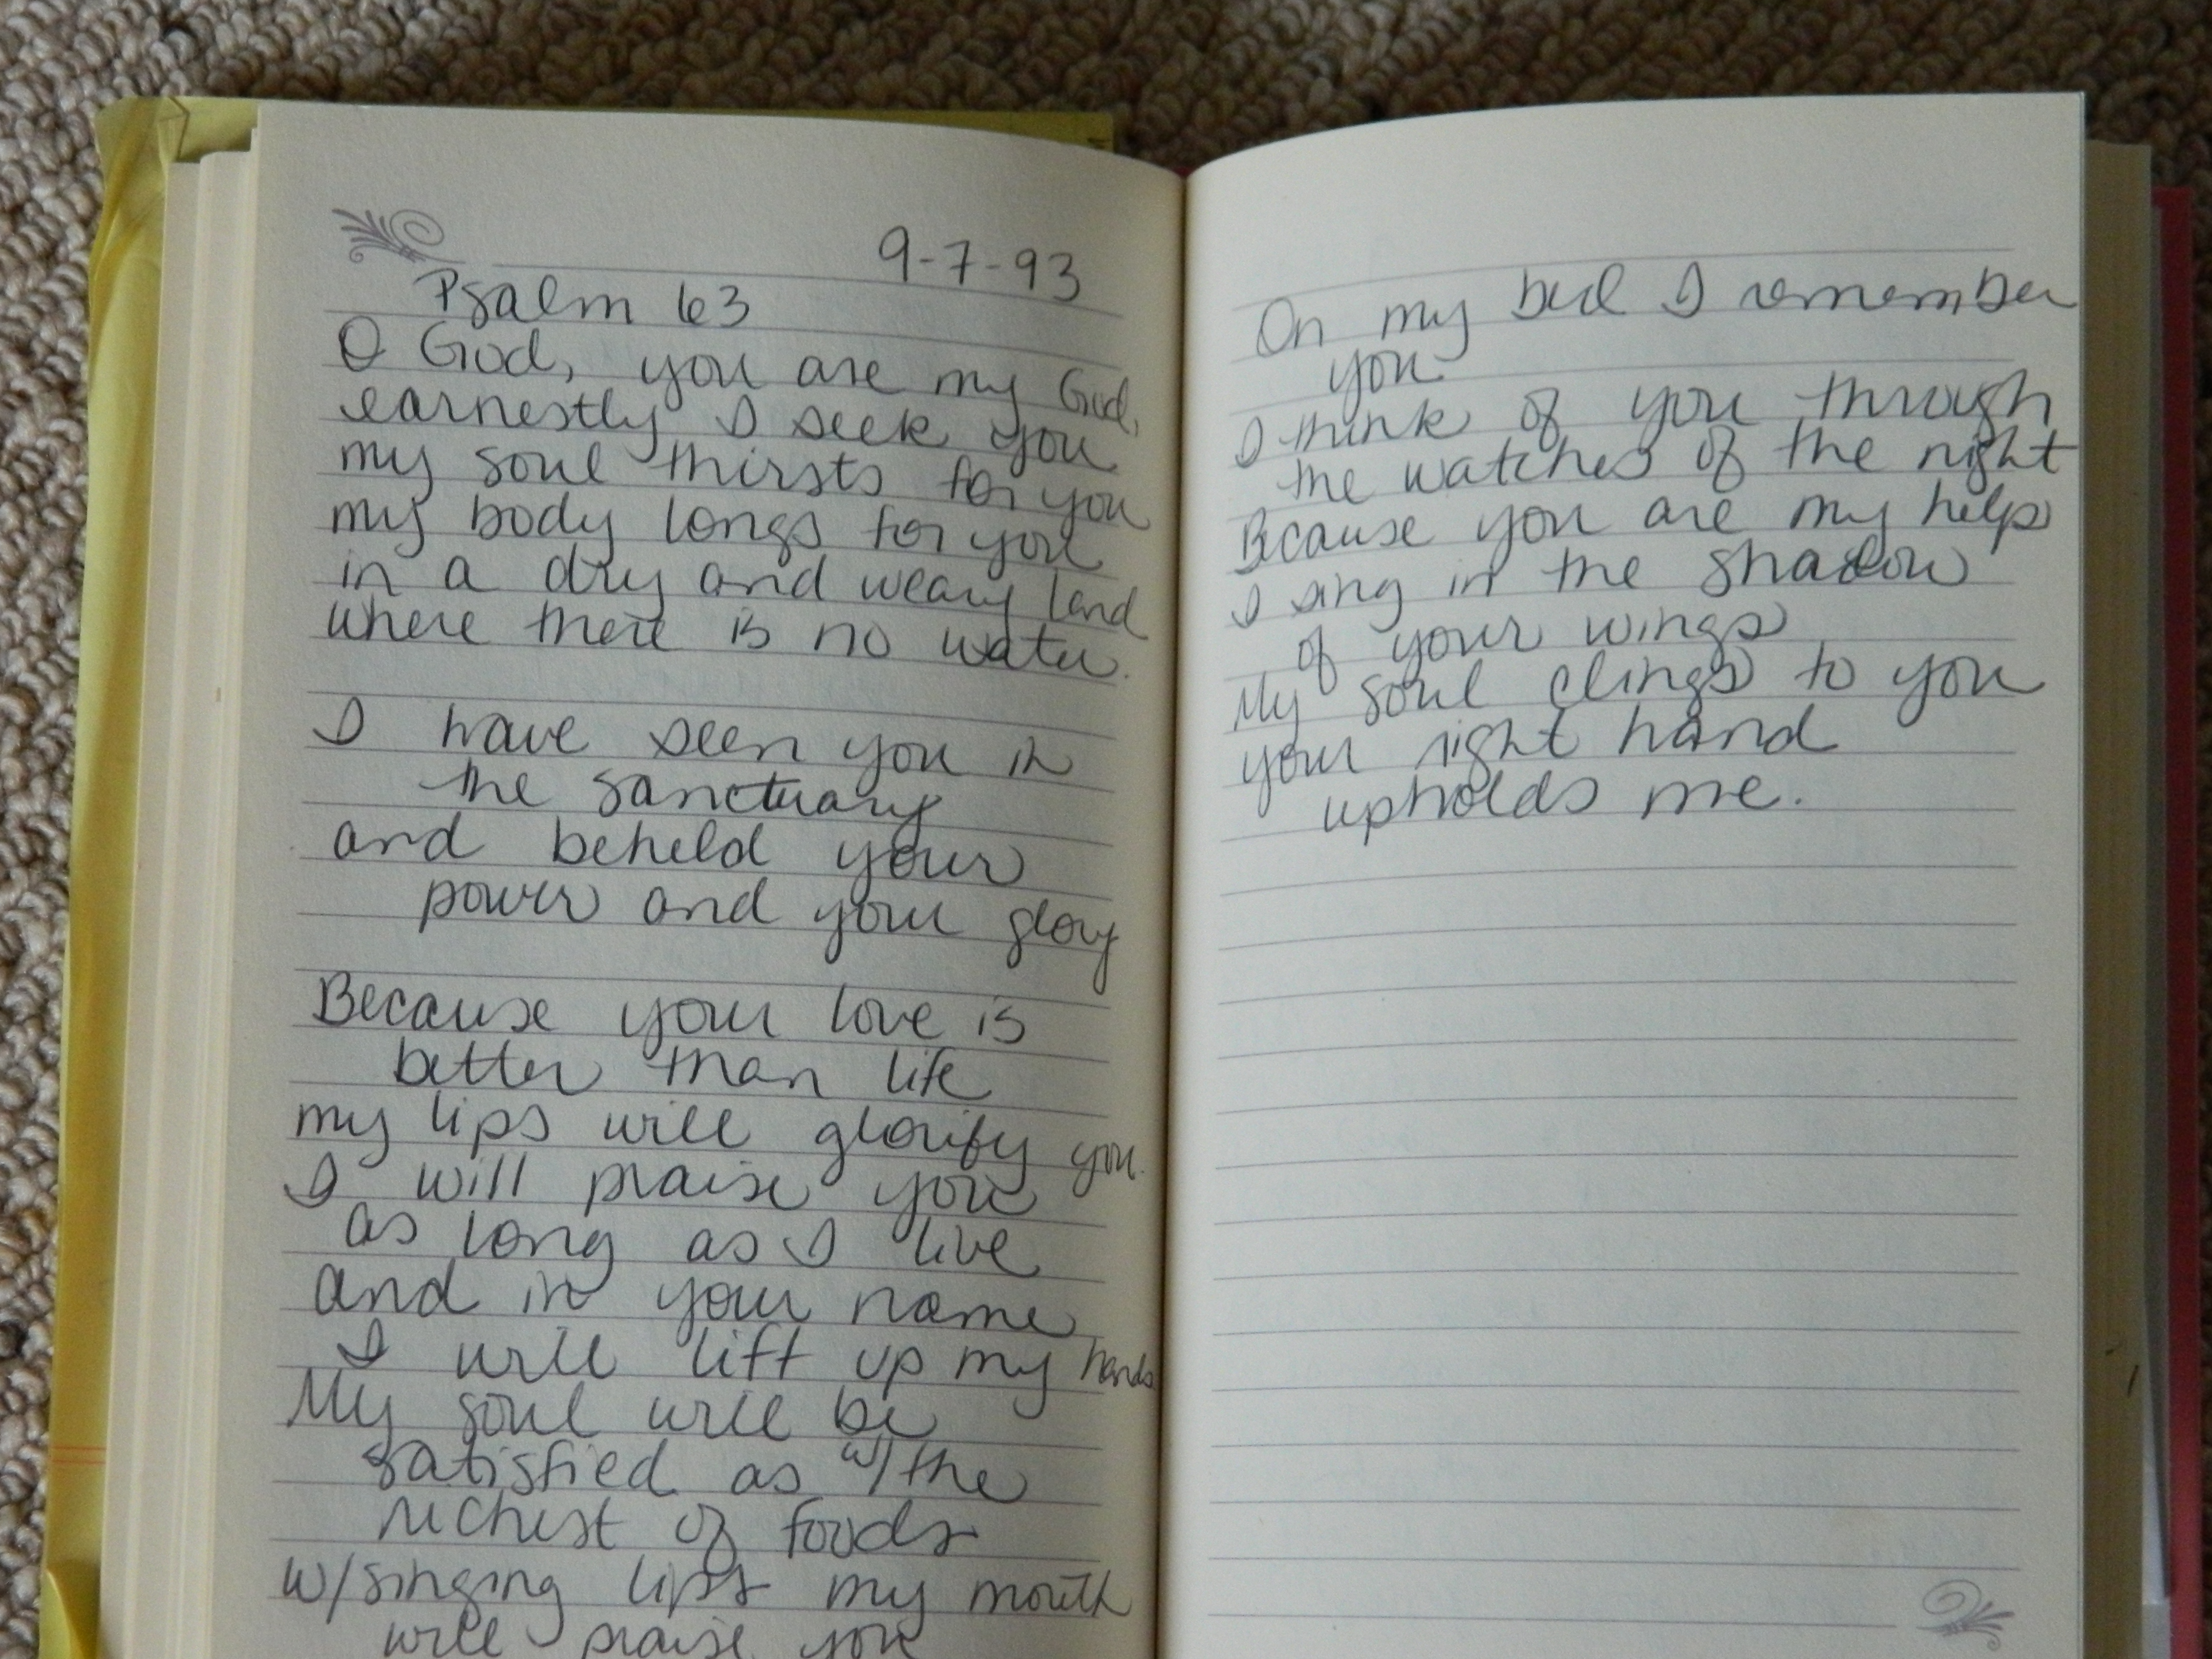 9-7-93
Psalm 63
O God, you are my God,
earnestly I seek you
my soul thirsts for you
my body longs for you
in a dry and weary land
where there is no water.
I have seen you in
the sanctuary
and beheld your
power and your glory
Because your love is
better than life
my lips will glorify you.
I will praise you
as long as I live
and in your name
I will lift up my hands
My soul will be
satisfied as w/ the
richest of foods
w/ singing lips my mouth
will praise you
On my bed I remember
you.
I think of you through
the watches of the night
Because you are my help
I sing in the shadow
of your wings
My soul clings to you
your right hand
upholds me.